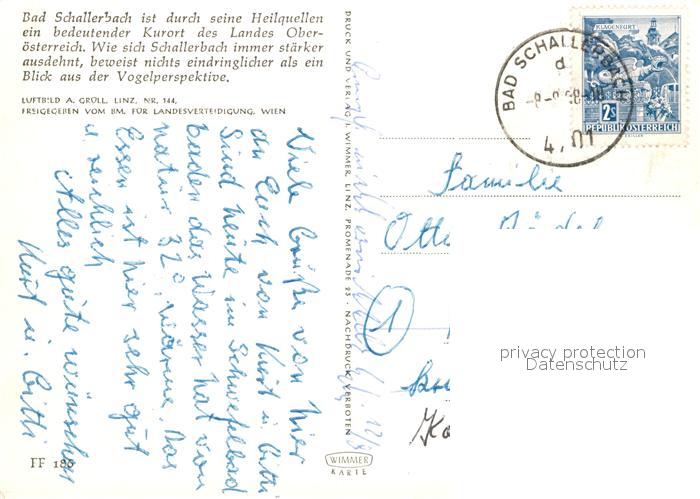 Bad Schallerbach ist durch seine Heilquellen
ein bedeutender Kurort des Landes Ober-
österreich. Wie sich Schallerbach immer stärker
ausdehnt, beweist nichts eindringlicher als ein
Blick aus der Vogelperspektive.
LUFTBILD A. GRÜLL, LINZ, NR. 144,
FREIGEGEBEN VOM BM. FÜR LANDESVERTEIDIGUNG, WIEN
Viele Grüße von hier
an Euch von Kurt u. Gitti
Sind heute im Schwefelbad
baden das Wasser hat von
Natur 32° wärme. Das
Essen ist hier sehr gut
u. reichlich
Alles gute wünschen
Kurt u. Gitti
FF 186
DRUCK UND VERLAG J. WIMMER, LINZ, PROMENADE 23 · NACHDRUCK VERBOTEN
WIMMER
KARTE
BAD SCHALLERBACH
d
4701
KLAGENFURT
2S
REPUBLIK ÖSTERREICH
Familie
Otto
1
privacy protection
Datenschutz